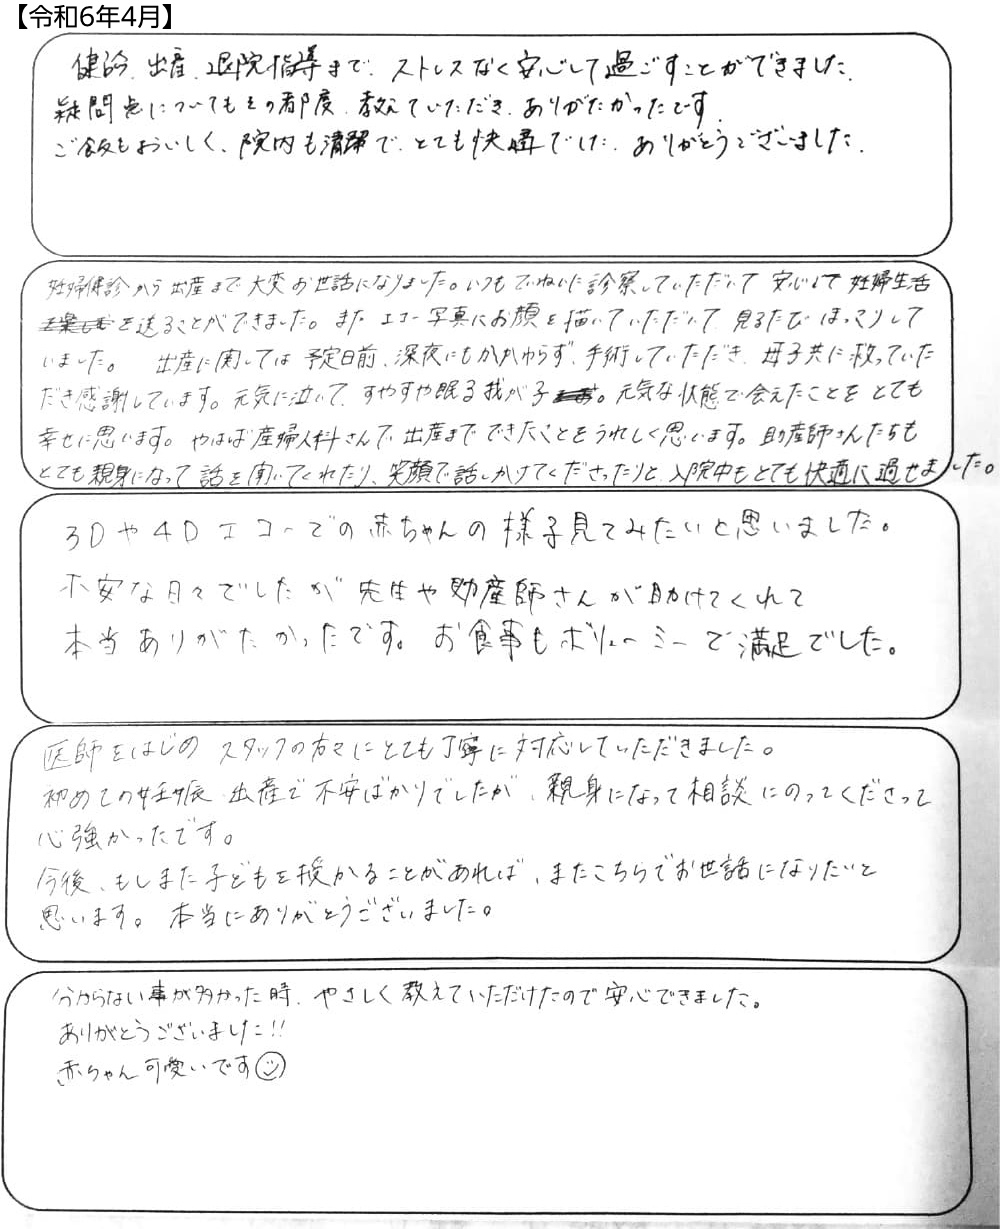 【令和6年4月】
健診、出産、退院指導まで、ストレスなく安心して過ごすことができました。
疑問点についてもその都度、教えていただき、ありがたかったです。
ご飯もおいしく、院内も清潔で、とても快適でした。ありがとうございました。
妊婦健診から出産まで大変お世話になりました。いつもていねいに診察していただいて安心して妊婦生活
を送ることができました。またエコー写真にお顔を描いていただいて、見るたびほっこりして
いました。 出産に関しては予定日前、深夜にもかかわらず、手術していただき、母子共に救っていた
だき感謝しています。元気に泣いて、すやすや眠る我が子。元気な状態で会えたことをとても
幸せに思います。やはぱ産婦人科さんで出産までできたことをうれしく思います。助産師さんたちも
とても親身になって話を聞いてくれたり、笑顔で話しかけてくださったりと、入院中もとても快適に過せました。
3Dや4Dエコーでの赤ちゃんの様子見てみたいと思いました。
不安な日々でしたが先生や助産師さんが助けてくれて
本当ありがたかったです。お食事もボリューミーで満足でした。
医師をはじめスタッフの方々にとても丁寧に対応していただきました。
初めての妊娠、出産で不安ばかりでしたが、親身になって相談にのってくださって
心強かったです。
今後、もしまた子どもを授かることがあれば、またこちらでお世話になりたいと
思います。本当にありがとうございました。
分からない事が多かった時、やさしく教えていただけたので安心できました。
ありがとうございました!!
赤ちゃん可愛いです☺